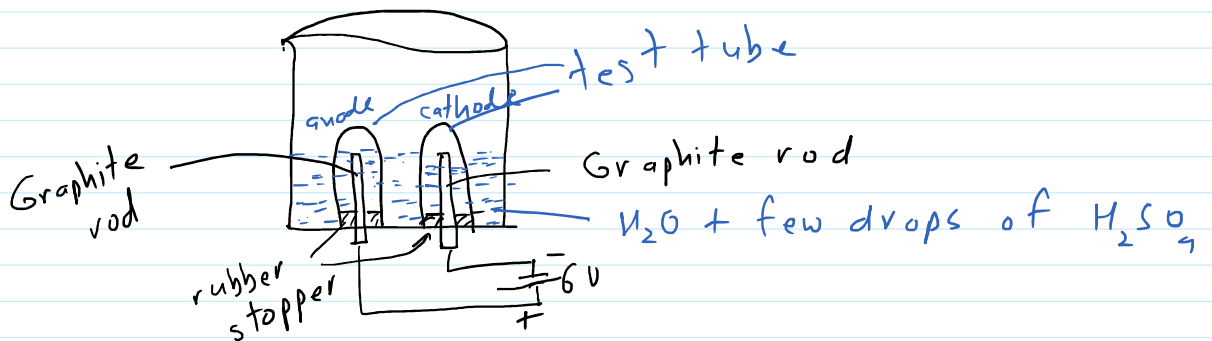 test tube
anode
cathode
Graphite
rod
Graphite rod
H₂O + few drops of H₂SO₄
rubber
stopper
−
6 V
+